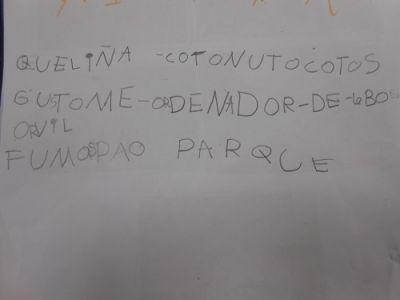 QUELIÑA -COTONUTOCOTOS
GUSTOME-ORDENADOR-DE-
ORVIL
FUMOSPAO PARQUE